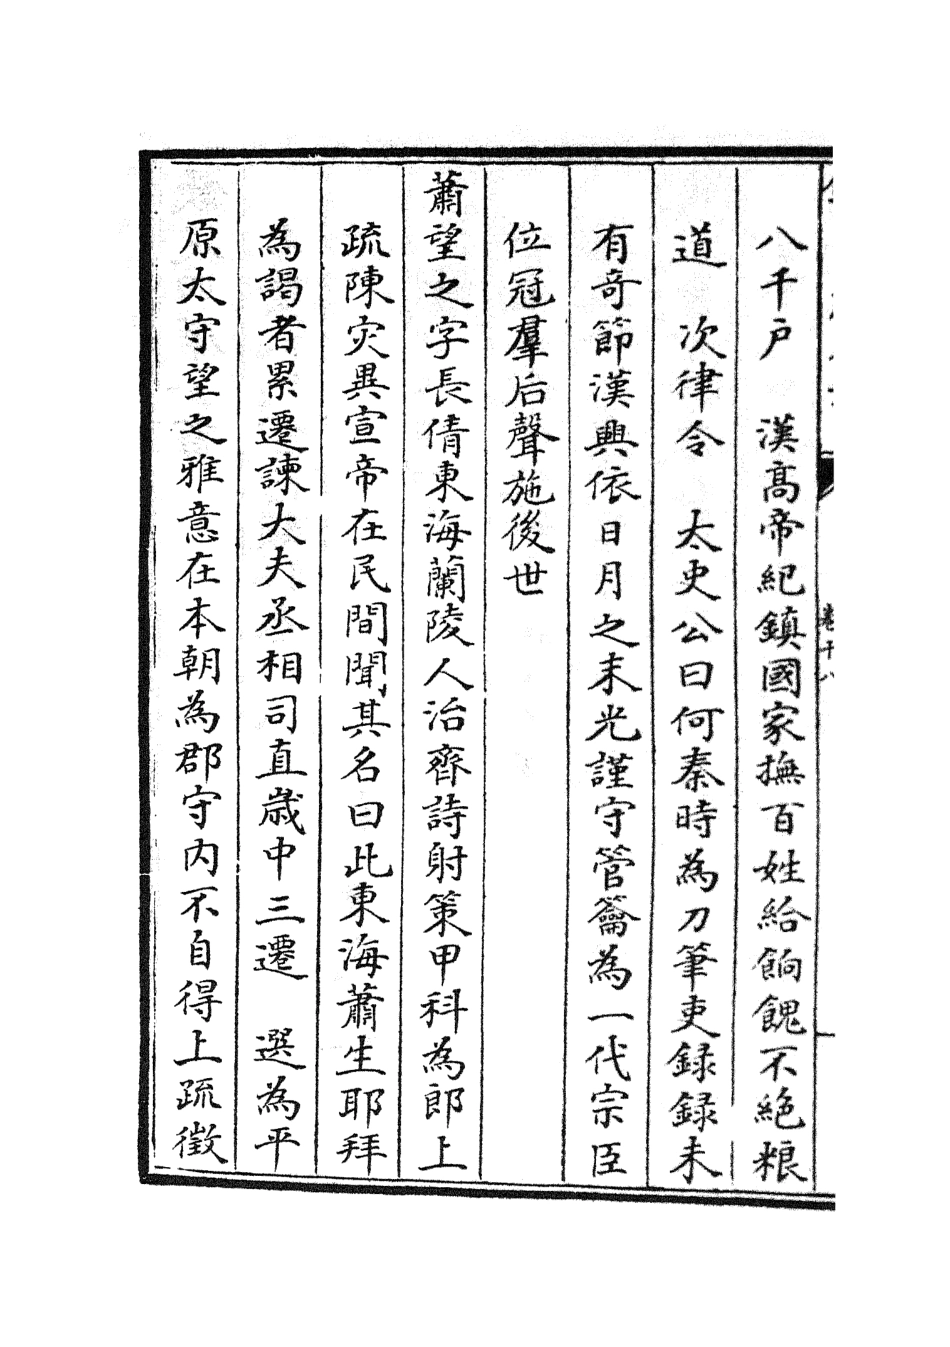 八千戶　漢高帝紀鎮國家撫百姓給餉餽不絶粮
道　次律令　太史公曰何秦時為刀筆吏録録未
有奇節漢興依日月之末光謹守管籥為一代宗臣
位冠羣后聲施後世
蕭望之字長倩東海蘭陵人治齊詩射策甲科為郎上
疏陳灾異宣帝在民間聞其名曰此東海蕭生耶拜
為謁者累遷諫大夫丞相司直歳中三遷　選為平
原太守望之雅意在本朝為郡守内不自得上疏徵